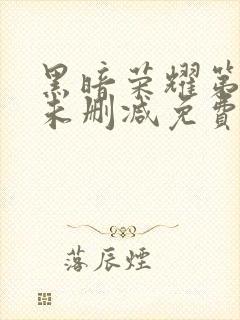 黑暗荣耀第
未删减免費
落辰煙